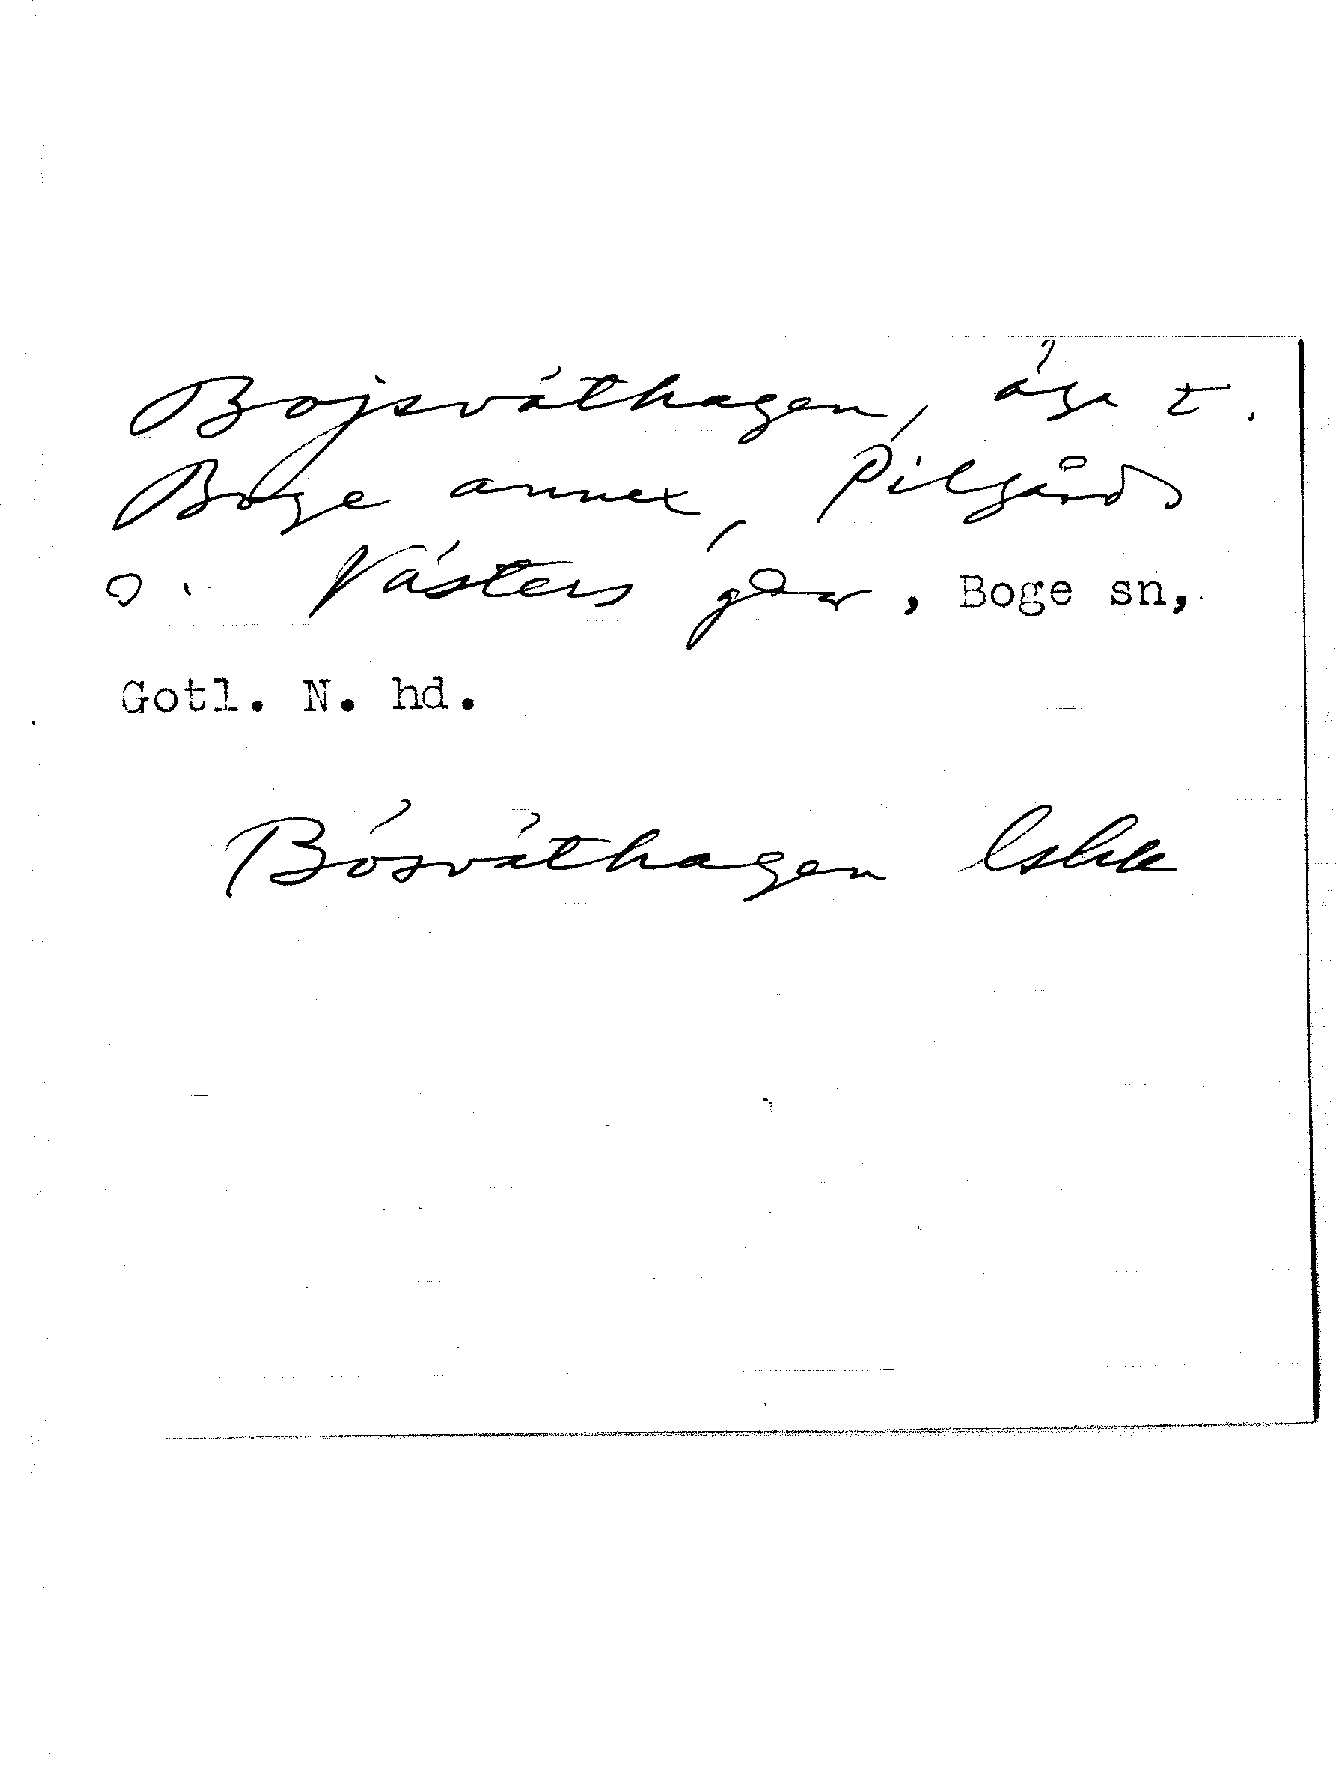 Bojsväthagen, äga t.
Boge annex, Pilgårds
o. Västers går, Boge sn,
Gotl. N. hd.
Bösväthagen